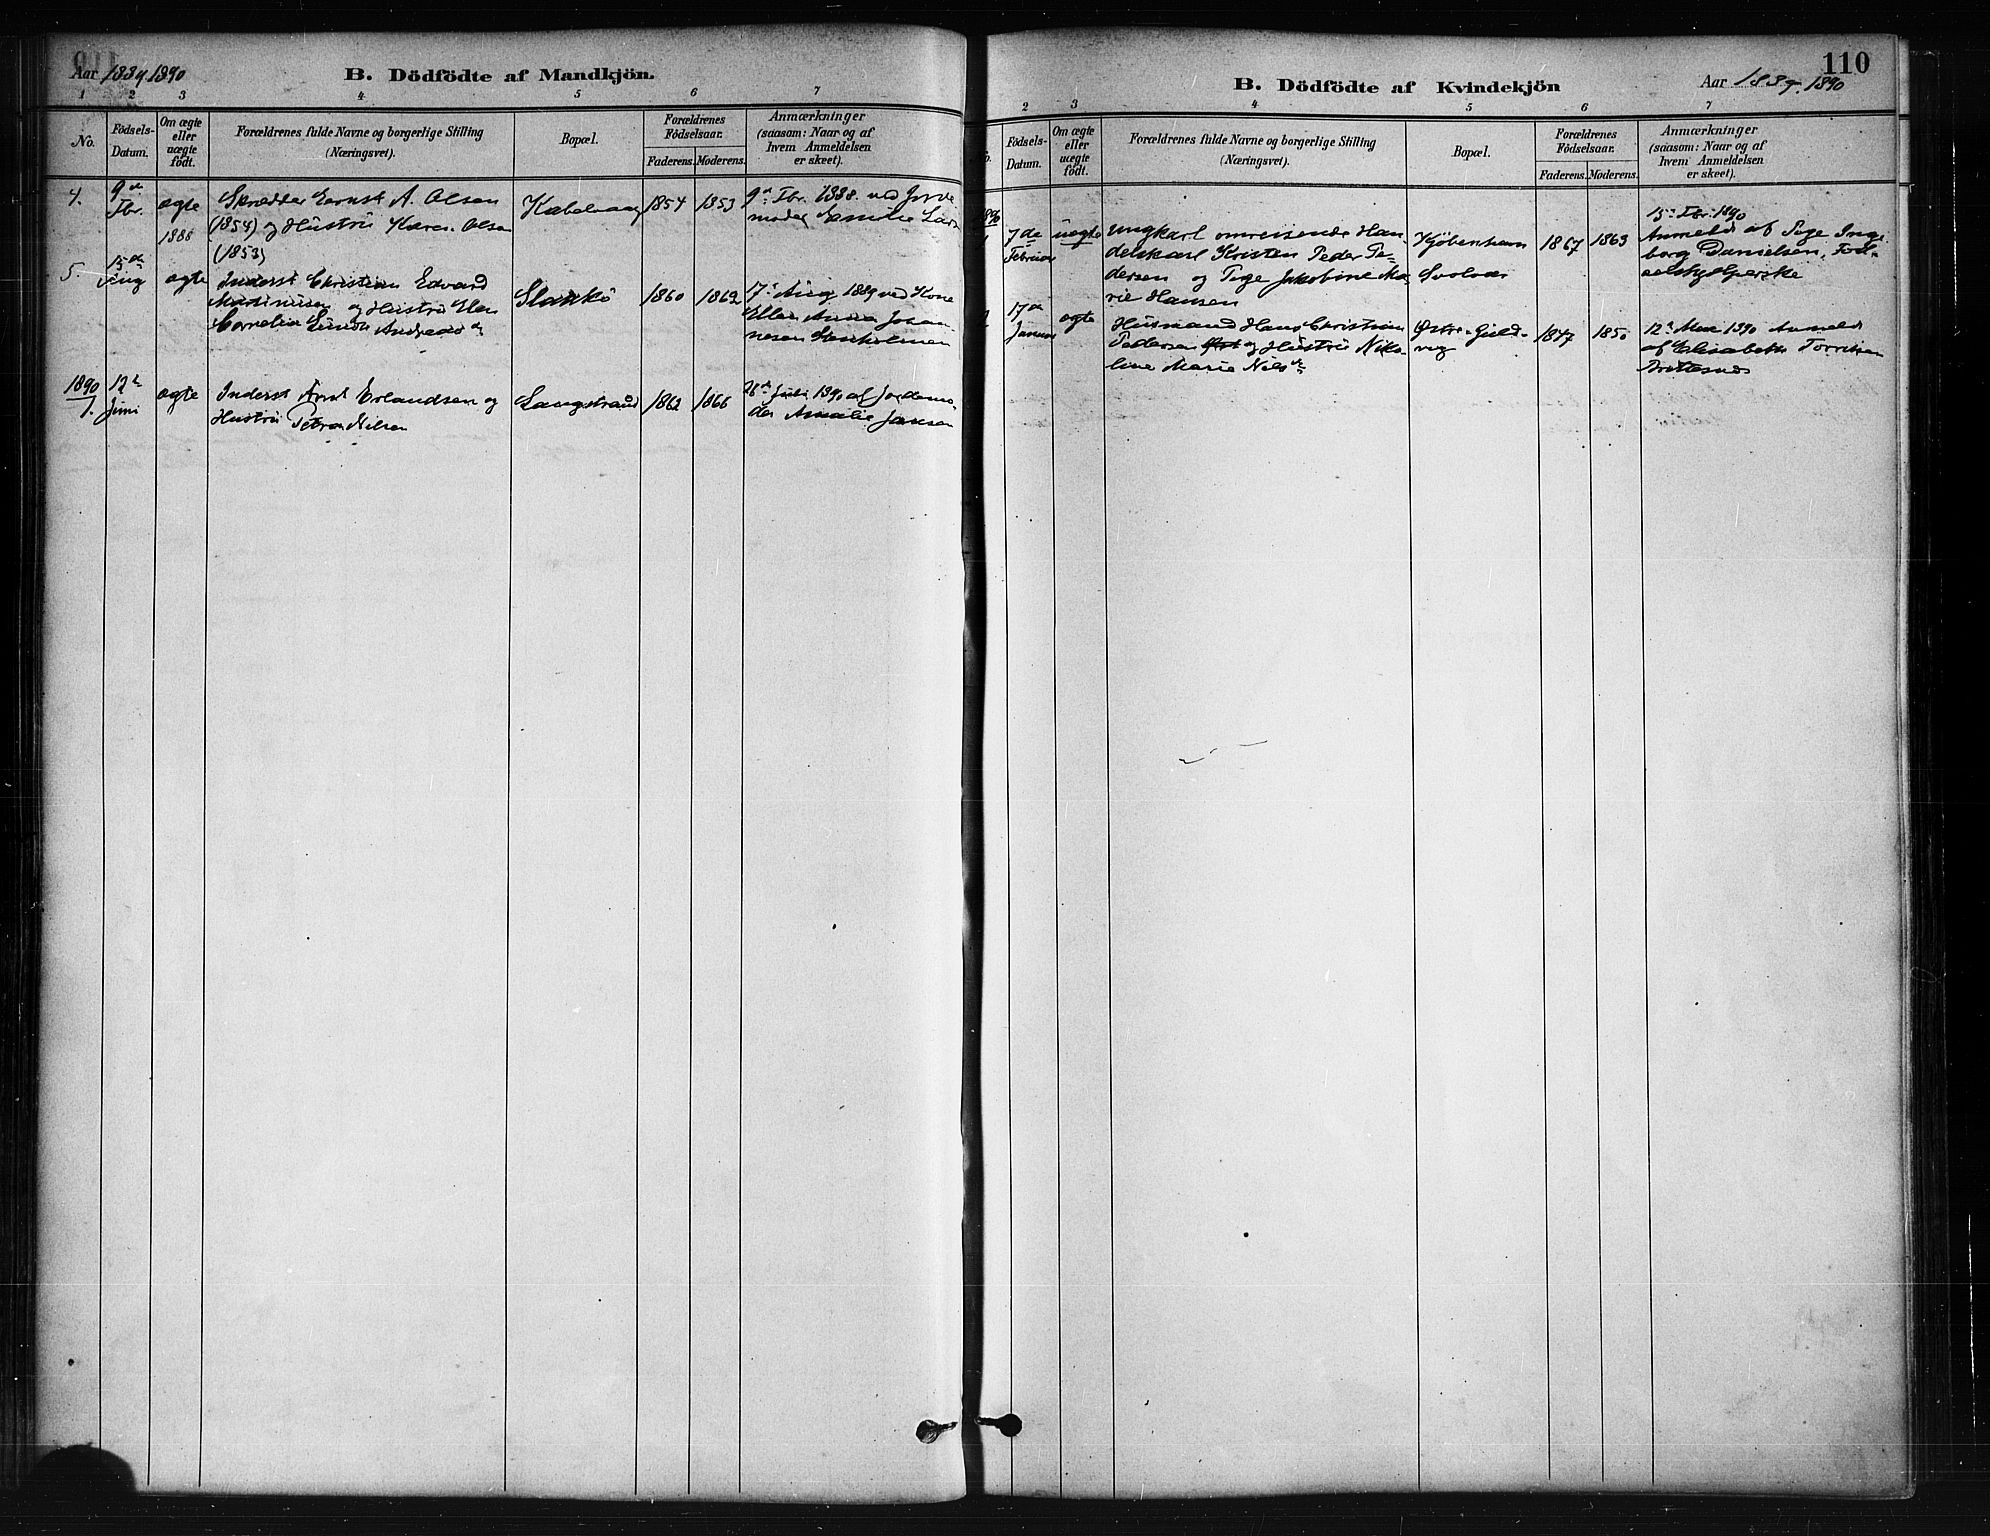 Aar 1889. 1890
B. Dödfödte af Mandkjön.
1 2 3 4 5 6 7
No.
Födsels-
Datum.
Om ægte
eller
uægte
födt.
Forældrenes fulde Navne og borgerlige Stilling
(Næringsvei).
Bopæl.
Forældrenes
Födselsaar.
Faderens. Moderens.
Anmærkninger
(saasom: Naar og af
hvem Anmeldelsen
er skeet).
4.
9de
Fbr.
1888
ægte
Skrædder Ernst A. Olsen
(1854) og Hustru Karen Olsen
(1853)
Kabelvaag
1854
1853
9de Fbr. 1888. ved Jorde
moder
5.
15de
Aug
ægte
Inderst Christian Edvard
Martinusen og Hustru Elen
Cornelia
1860
1862
17de Aug 1889 ved Kone
Ellen Anna Johan-
nesen
1890
1.
12te
Juni
ægte
Inderst Arnt Erlandsen og
Hustru Petra Nilsen
Langstrand
1862
1866
28de Juli 1890 af Jordemo-
der Amalie Jansen
110
B. Dödfödte af Kvindekjön
Aar 1889. 1890
2 3 4 5 6 7
No.
Födsels-
Datum.
Om ægte
eller
uægte
födt.
Forældrenes fulde Navne og borgerlige Stilling
(Næringsvei).
Bopæl.
Forældrenes
Födselsaar.
Faderens. Moderens.
Anmærkninger
(saasom: Naar og af
hvem Anmeldelsen
er skeet).
1890
1
7de
Februar
uægte
Ungkarl omreisende Han-
delskarl Kristen Peder Pe-
dersen og Pige Jakobine Ma-
rie Hansen
Kjøbenhavn
Svolvær
1867
1863
15de Fbr. 1890
Anmeldt af Pige Inge
borg Danielsen, Fød-
2
17de
Januar
ægte
Husmand Hans Christian
Pedersen og Hustru Niko-
line Marie Nilsdr
Østre-Guld-
vig
1847
1850
12te Mai 1890 Anmeldt
af Elisabeth Torrisen
Brettesnes